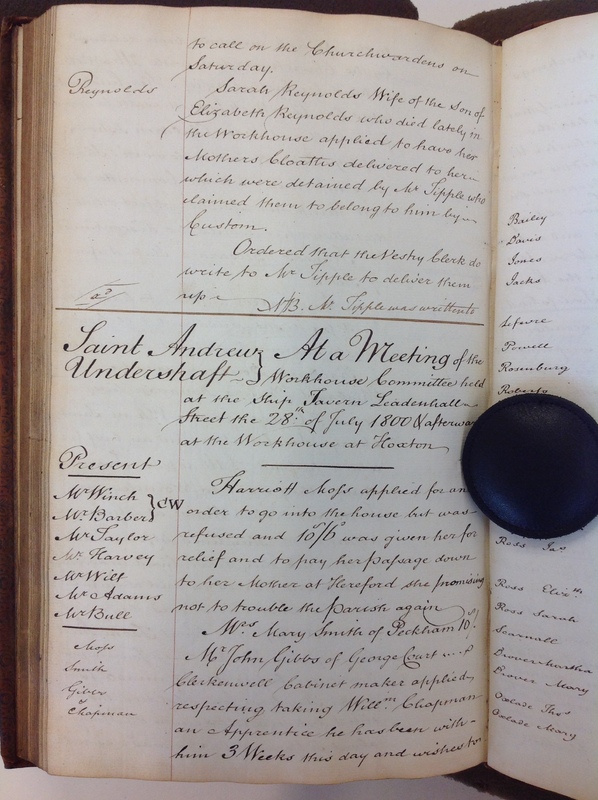 to call on the Churchwardens on
Saturday.
Reynolds
Sarah Reynolds Wife of the Son of
Elizabeth Reynolds who died lately in
the Workhouse applied to have her
Mothers Cloaths delivered to her
which were detained by Mr Tipple who
claimed them to belong to him by
Custom.
Ordered that the Vestry Clerk do
write to Mr Tipple to deliver them
up
NB. Mr Tipple was written to
Saint Andrew
Undershaft
At a Meeting of the
Workhouse Committee held
at the Ship Tavern Leadenhall
Street the 28th of July 1800 & afterwar
at the Workhouse at Hoxton
Present
Mr Winch
Mr Barber
CW
Mr Taylor
Mr Harvey
Mr Wilt
Mr Adams
Mr Bull
Moss
Smith
Gibbs
Chapman
Harriott Moss applied for an
order to go into the house but was
refused and 10/6 was given her for
relief and to pay her passage down
to her Mother at Hereford she promising
not to trouble the parish again
Mrs Mary Smith of Peckham 10s/
Mr John Gibbs of George Court
Clerkenwell Cabinet maker applied
respecting taking Willm Chapman
an Apprentice he has been with
him 3 Weeks this day and wishes to
Bailey
Davis
Jones
Jacks
Lefevre
Powell
Rosenburg
Roberts
Ross Jas
Ross Elizth
Ross Sarah
Brower Martha
Brower Mary
Oxlade Thos
Oxlade Mary